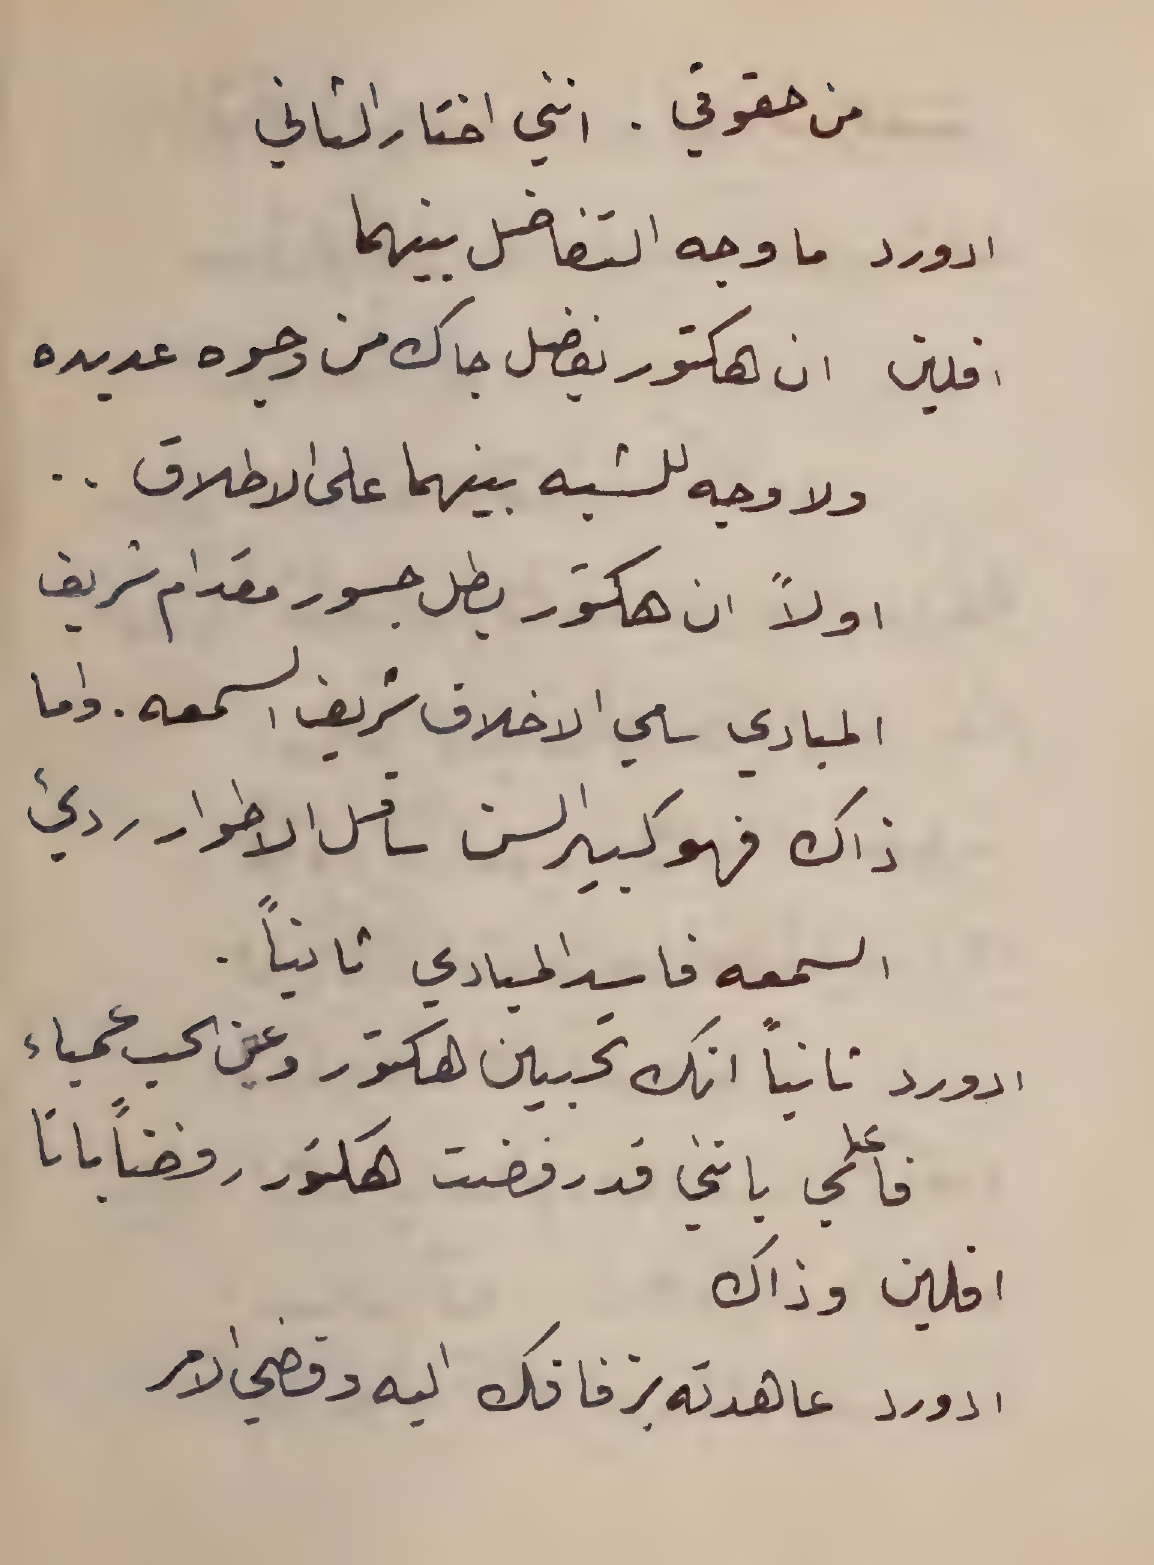 من حقوقي . انني اختار الثاني
ادورد ما وجه التفاضل بينهما
افلين ان هكتور يفضل جاك من وجوه عديده
ولا وجه للشبه بينهما على الاطلاق ..
اولاً ان هكتور بطل جسور مقدام شريف
المبادي سامي الاخلاق شريف السمعه . واما
ذاك فهو كبير السن سافل الاطوار ردئ
السمعه فاسد المبادي ثانياً .
ادورد ثانياً انك تحبين هكتور وعين الحب عمياء
فاعلمي بانني قد رفضت هكتور رفضاً باتا
افلين وذاك
ادورد عاهدته بزفافك اليه وقضي الامر